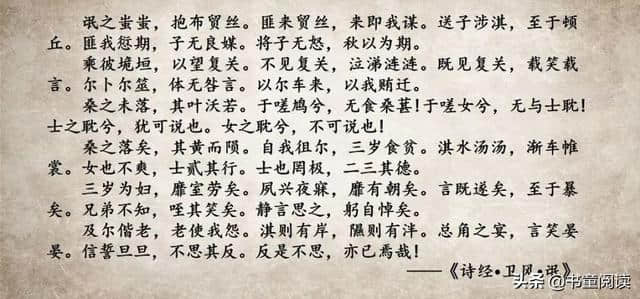 氓之蚩蚩，抱布贸丝。匪来贸丝，来即我谋。送子涉淇，至于顿
丘。匪我愆期，子无良媒。将子无怒，秋以为期。
乘彼垝垣，以望复关。不见复关，泣涕涟涟。既见复关，载笑载
言。尔卜尔筮，体无咎言。以尔车来，以我贿迁。
桑之未落，其叶沃若。于嗟鸠兮，无食桑葚！于嗟女兮，无与士耽！
士之耽兮，犹可说也。女之耽兮，不可说也！
桑之落矣，其黄而陨。自我徂尔，三岁食贫。淇水汤汤，渐车帷
裳。女也不爽，士贰其行。士也罔极，二三其德。
三岁为妇，靡室劳矣。夙兴夜寐，靡有朝矣。言既遂矣，至于暴
矣。兄弟不知，咥其笑矣。静言思之，躬自悼矣。
及尔偕老，老使我怨。淇则有岸，隰则有泮。总角之宴，言笑晏
晏。信誓旦旦，不思其反。反是不思，亦已焉哉！
——《诗经·卫风·氓》
头条 @书童阅读